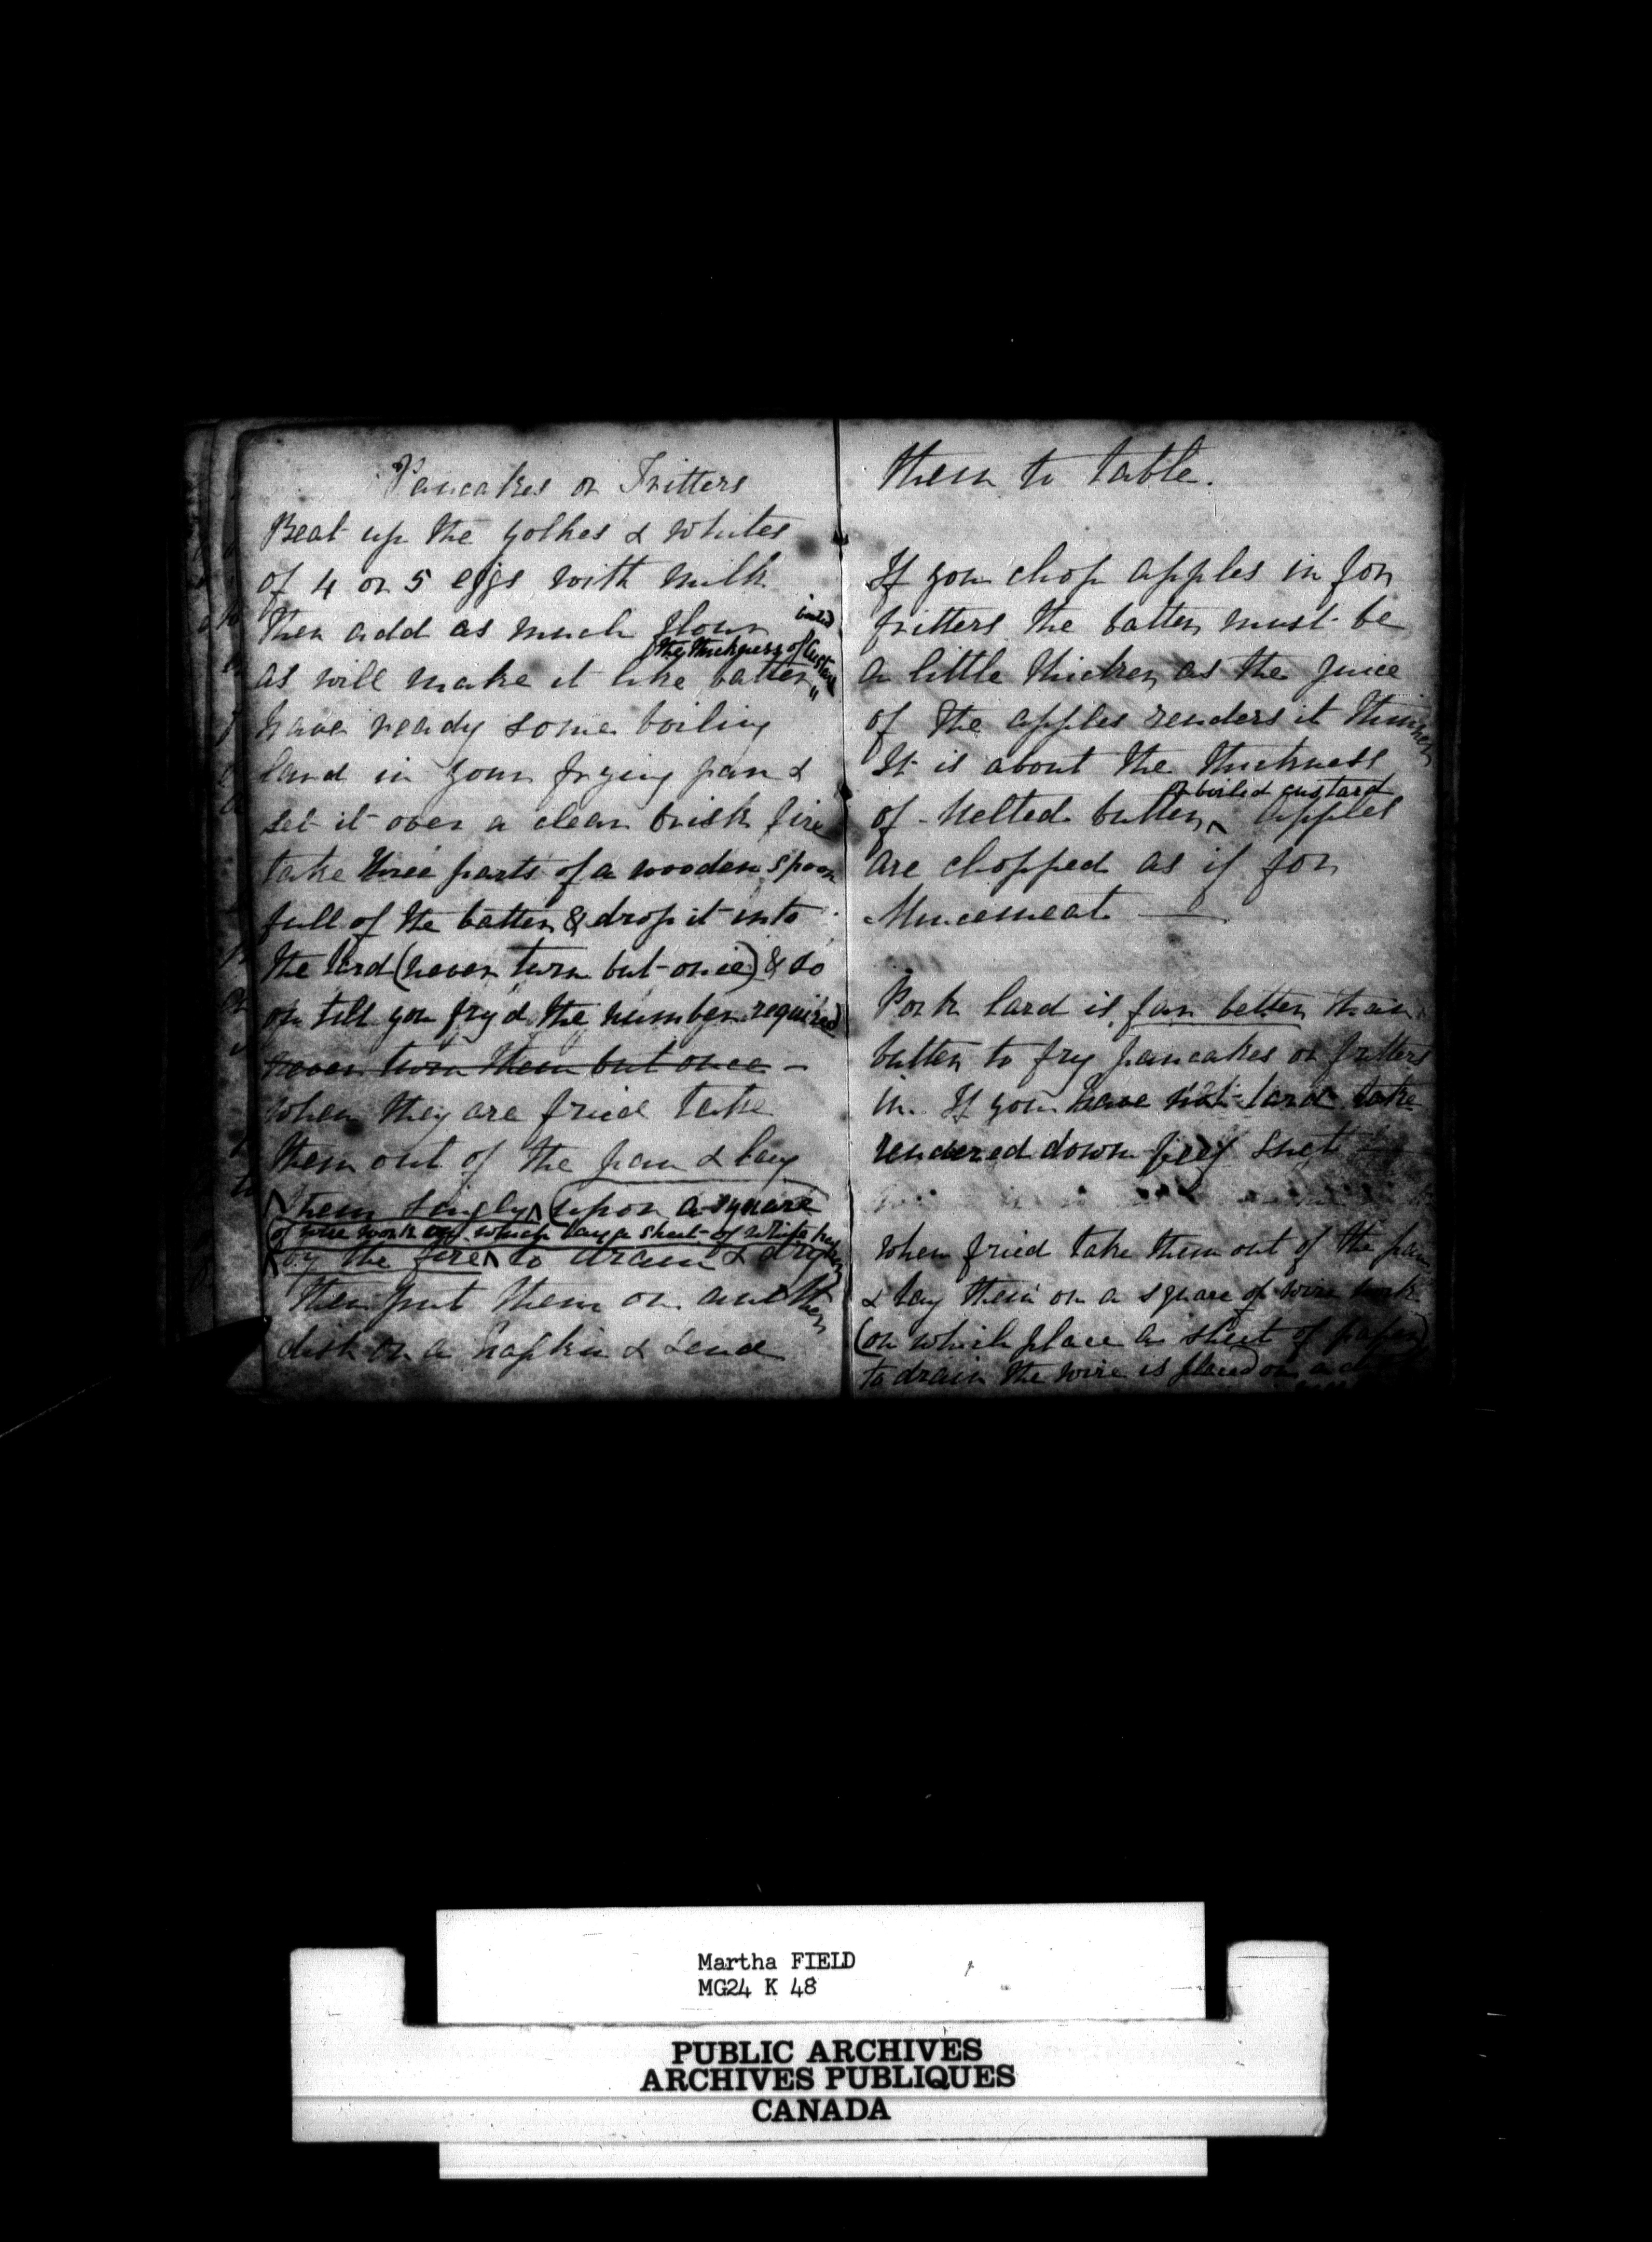 Pancakes or Fritters
Beat up the yolkes & whites
of 4 or 5 eggs with milk
then add as much flour
boiled
the thickness of Custard
as will make it like batter,
have ready some boiling
lard in your frying pan &
set it over a clear brisk fire
take three parts of a wooden spoon
full of the batter & drop it into
the lard (never turn but once) & so
on till you fry'd the number required
never turn them but once —
when they are fried take
them out of the pan & lay
them singly (upon a square
of wire work on which lay a sheet of white
by the fire to drain & dry
then put them on another
dish on a Napkin & send
them to table.
If you chop apples in for
fritters the batter must be
a little thicker, as the juice
of the apples renders it thinner
It is about the thickness
or boiled custard
of Melted butter, Apples
are chopped as if for
Mincemeat —
Pork lard is far better than
butter to fry pancakes or fritters
in. If you have not lard take
rendered down beef suet
When fried take them out of the pan
& lay them on a square of wire work
(on which place a sheet of paper)
to drain the wire is placed on a
Martha FIELD
MG24 K 48
PUBLIC ARCHIVES
ARCHIVES PUBLIQUES
CANADA